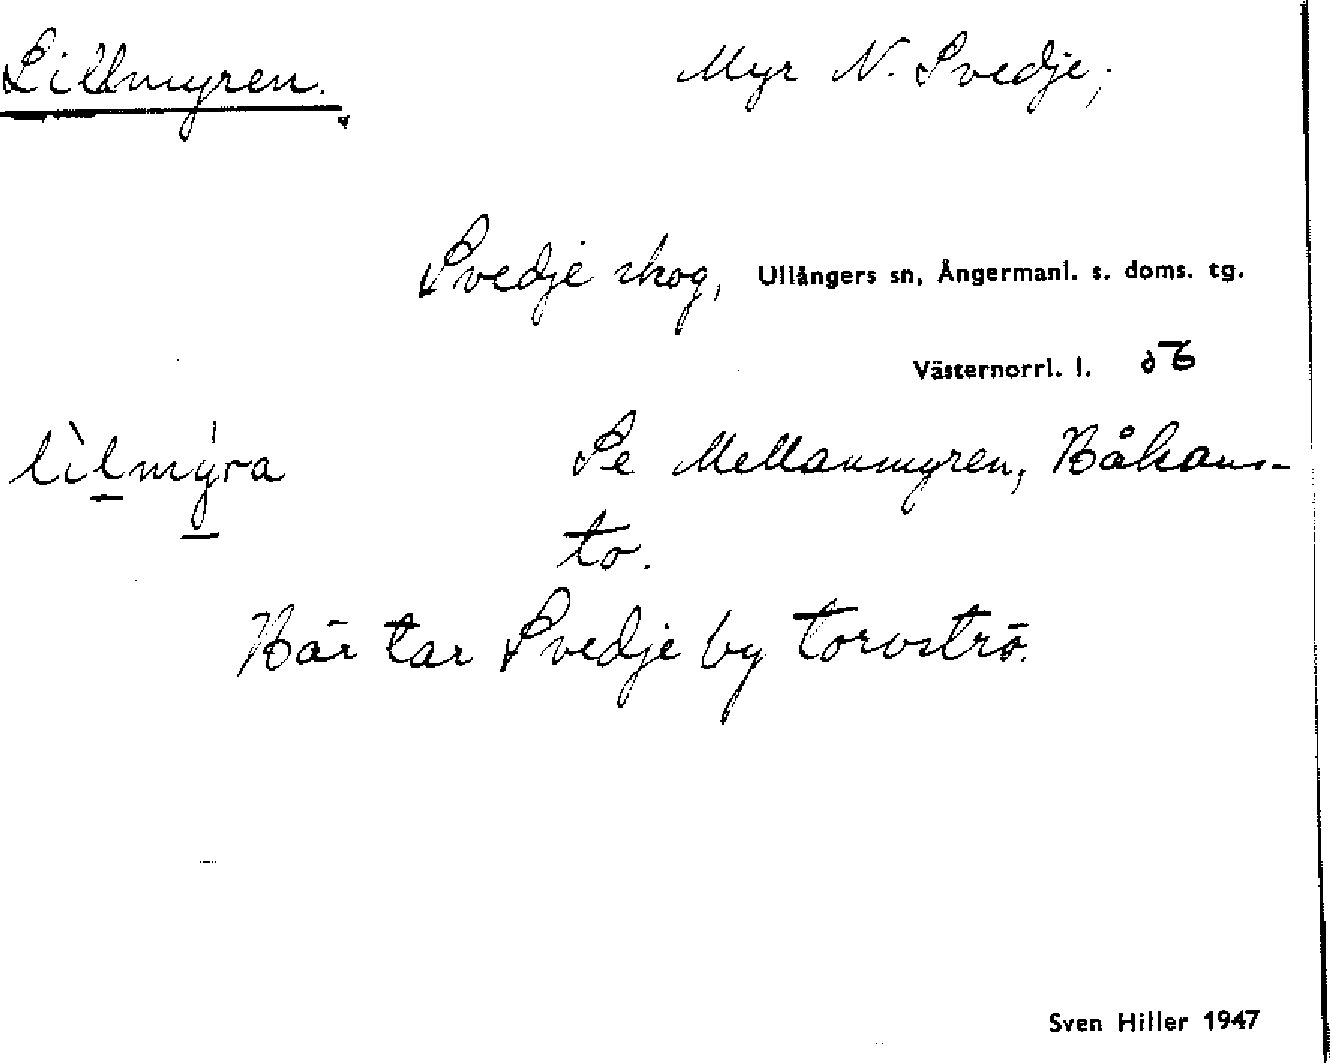 Lillmyren. Myr N. Svedje;
Svedje skog, Ullångers sn, Ångermanl. s. doms. tg.
Västernorrl. l. 56
lìlmýra Se Mellanmyren, Håkans-
to.
Här tar Svedje by torvströ.
Sven Hiller 1947